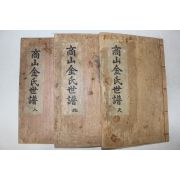 商山金氏世譜 人
商山金氏世譜 地
商山金氏世譜 天